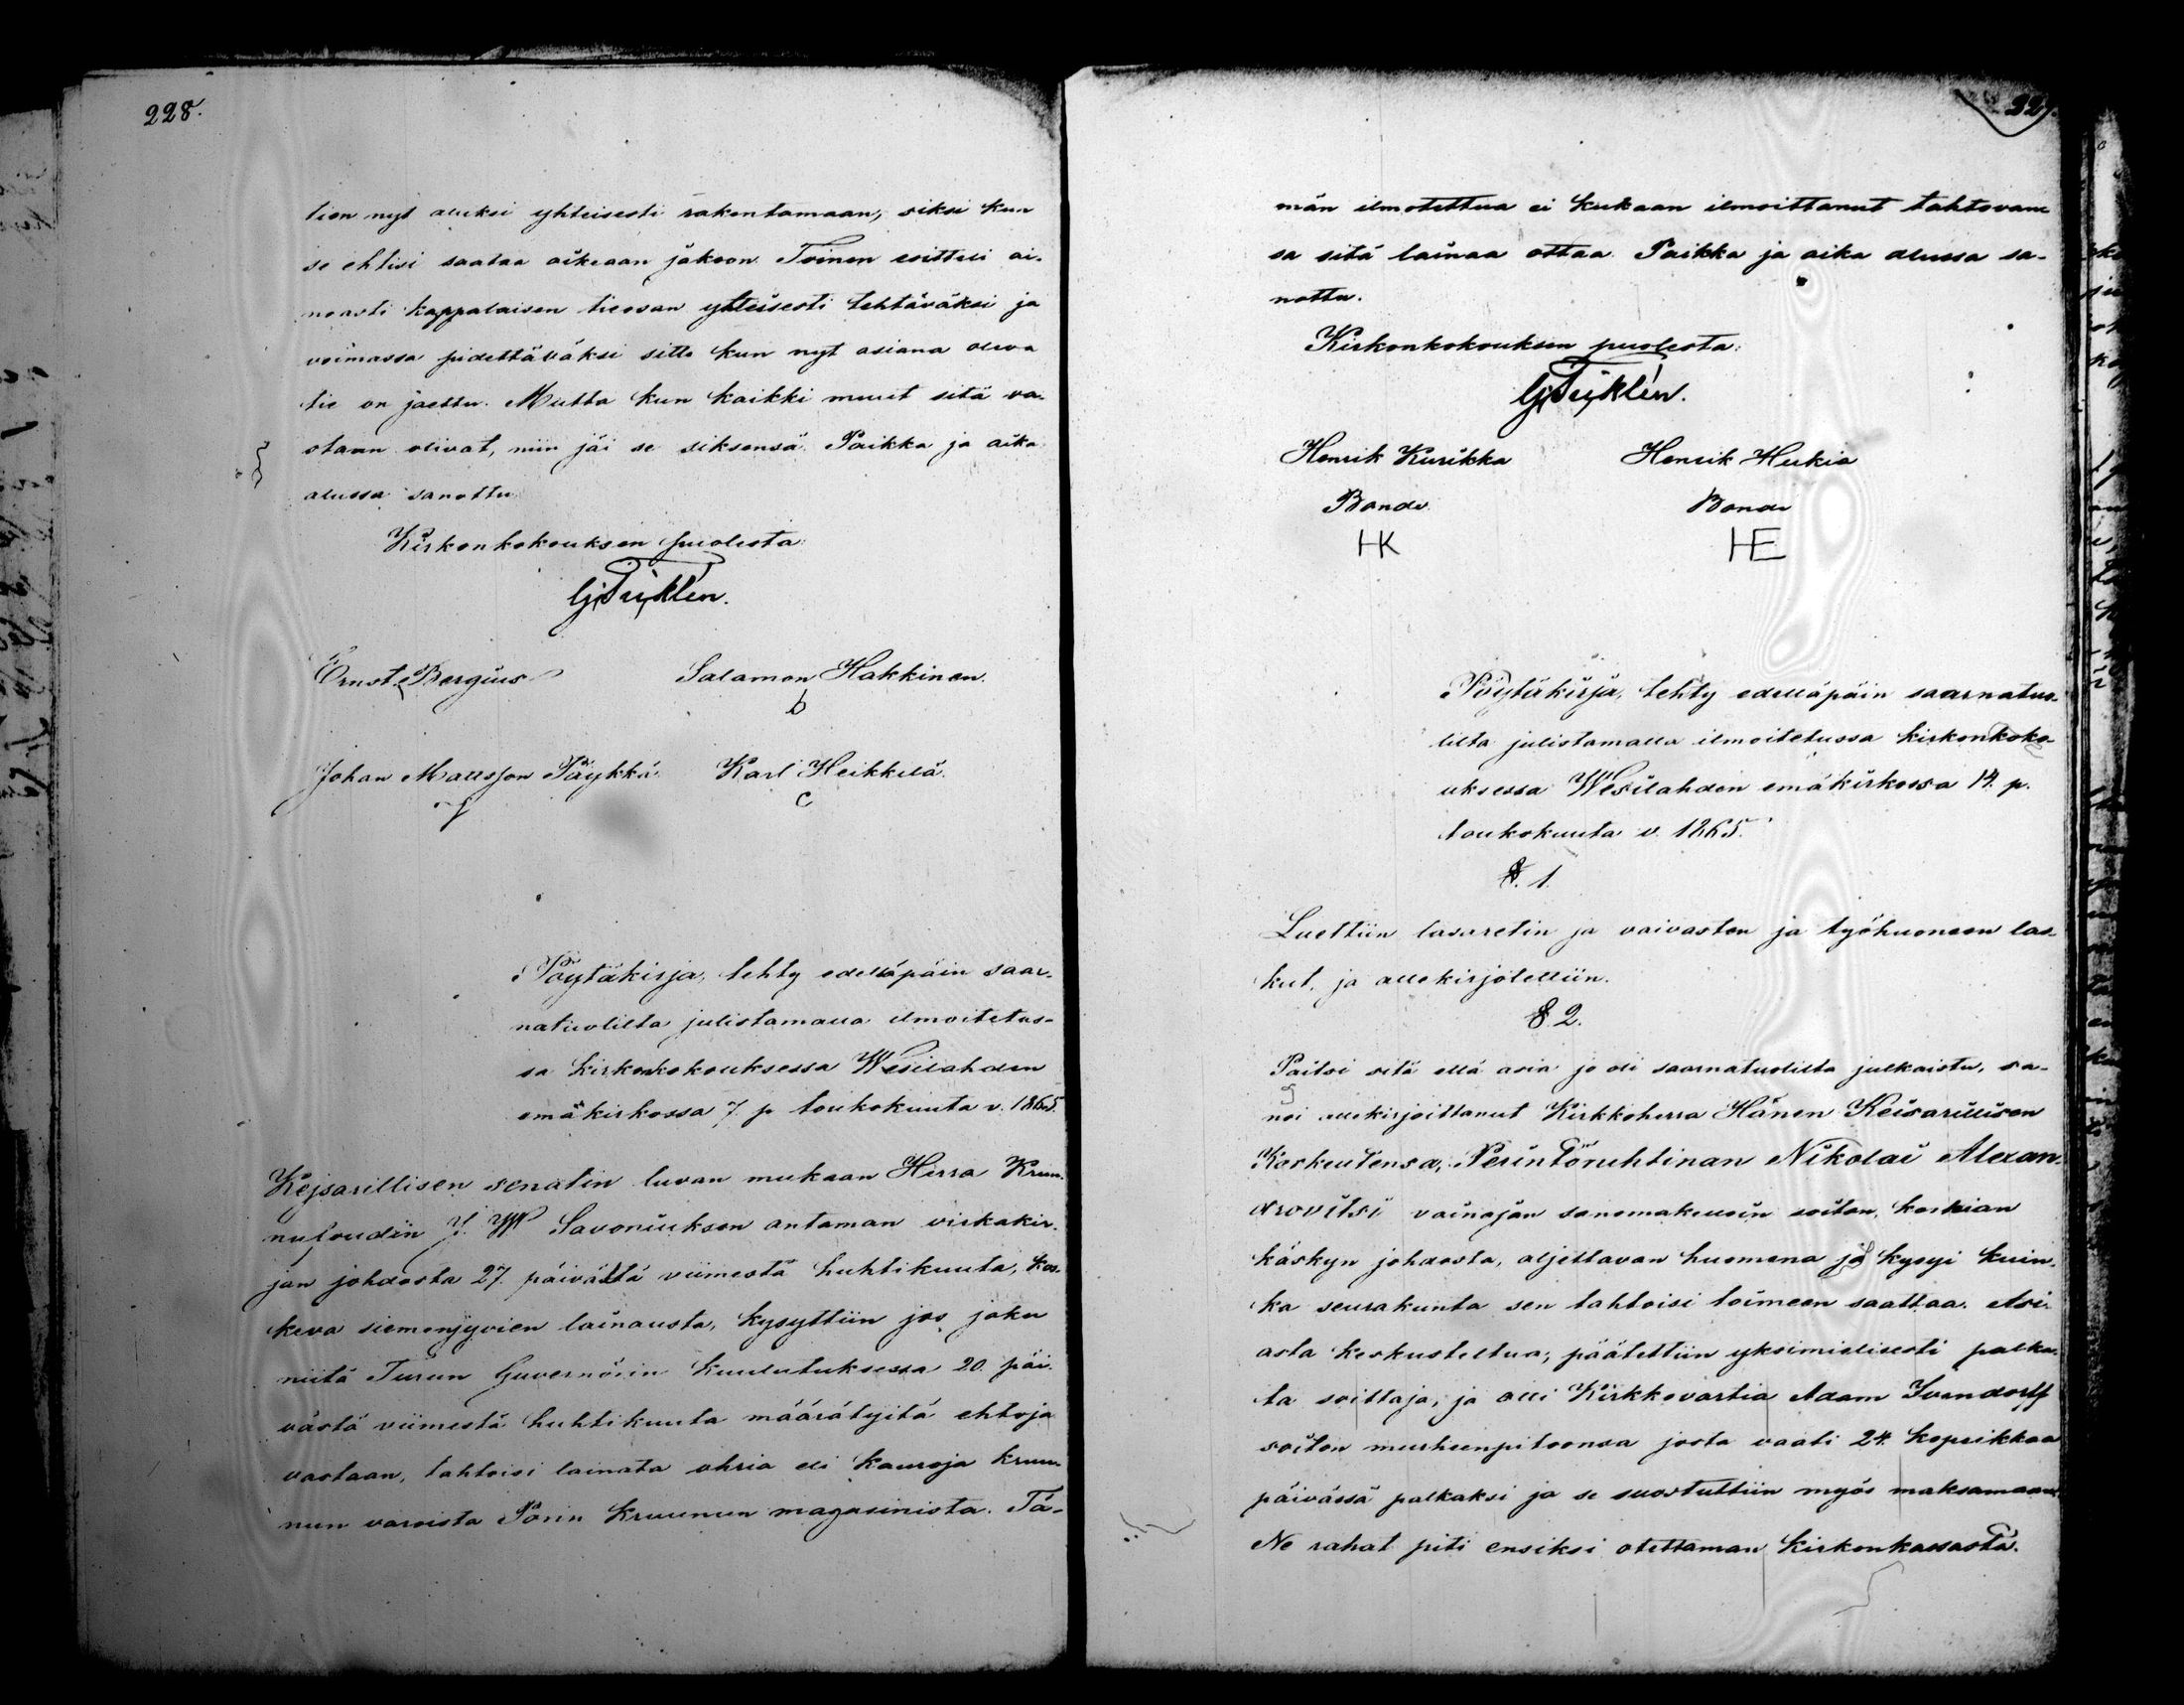 228.
tien nyt aluksi yhteisesti rakentamaan, siksi kun
se ehtisi saataa oikeaan jakoon. Toinen esitteli ai-
noasti kappalaisen tieosan yhteisesti tehtäväksi ja
voimassa pidettäväksi sitte kun nyt asiana oleva
tie on jaettu. Mutta kun kaikki muut sitä va-
staan olivat, niin jäi se siksensä. Paikka ja aika
alussa sanottu.
Kirkonkokouksen puolesta:
Ernst Bergius Salamon Hakkinen.
Johan Mattsson Päykkä. Karl Heikkilä.
Pöytäkirja, tehty edelläpäin saar-
natuolilta julistamalla ilmoitetus-
sa kirkonkokouksessa Wesilahden
emäkirkossa 7. p. toukokuuta v. 1865.
Kejsarillisen senatin luvan mukaan Herra Kruu-
nufoudin J. W. Savoniuksen antaman virkakir-
jan johdosta 27. päivältä viimestä huhtikuuta, kos-
keva siemenjyvien lainausta, kysyttiin jos joku
niitä Turun Guvernörin kuulutuksessa 20. päi-
västä viimestä huhtikuuta määrätyitä ehtoja
vastaan, tahtoisi lainata ohria eli kauroja kruu-
nun varoista Porin kruunun magasinista. Tä-
229.
män ilmotettua ei kukaan ilmoittanut tahtovan-
sa sitä lainaa ottaa. Paikka ja aika alussa sa-
nottu.
Kirkonkokouksen puolesta:
Henrik Kurikka Henrik Heikia
Bonde Bonde
HK HE
Pöytäkirja, tehty edelläpäin saarnatuo-
lilta julistamalla ilmoitetussa kirkonkoko-
uksessa Wesilahden emäkirkossa 14. p.
toukokuuta v. 1865.
§. 1.
Luettiin lasaretin ja vaivasten ja työhuoneen las-
kut, ja allekirjotettiin.
§ 2.
Paitsi sitä että asia jo oli saarnatuolilta julkaistu, sa-
noi allekirjoittanut Kirkkoherra Hänen Keisarillisen
Korkeutensa, Perintöruhtinan Nikolai Alexan-
drovitsi vainajan sanomakelloin soiton, korkian
käskyn johdosta, aljettavan huomena ja kysyi kuin-
ka seurakunta sen tahtoisi toimeen saattaa. Asi-
asta keskusteltua, päätettiin yksimielisesti palka-
ta soittaja, ja otti Kirkkovartia Adam Ivendorff
soiton murheenpitoonsa josta vaati 24. kopeikkaa
päivässä palkaksi ja se suostuttiin myös maksamaan.
Ne rahat piti ensiksi otettaman kirkonkassasta.